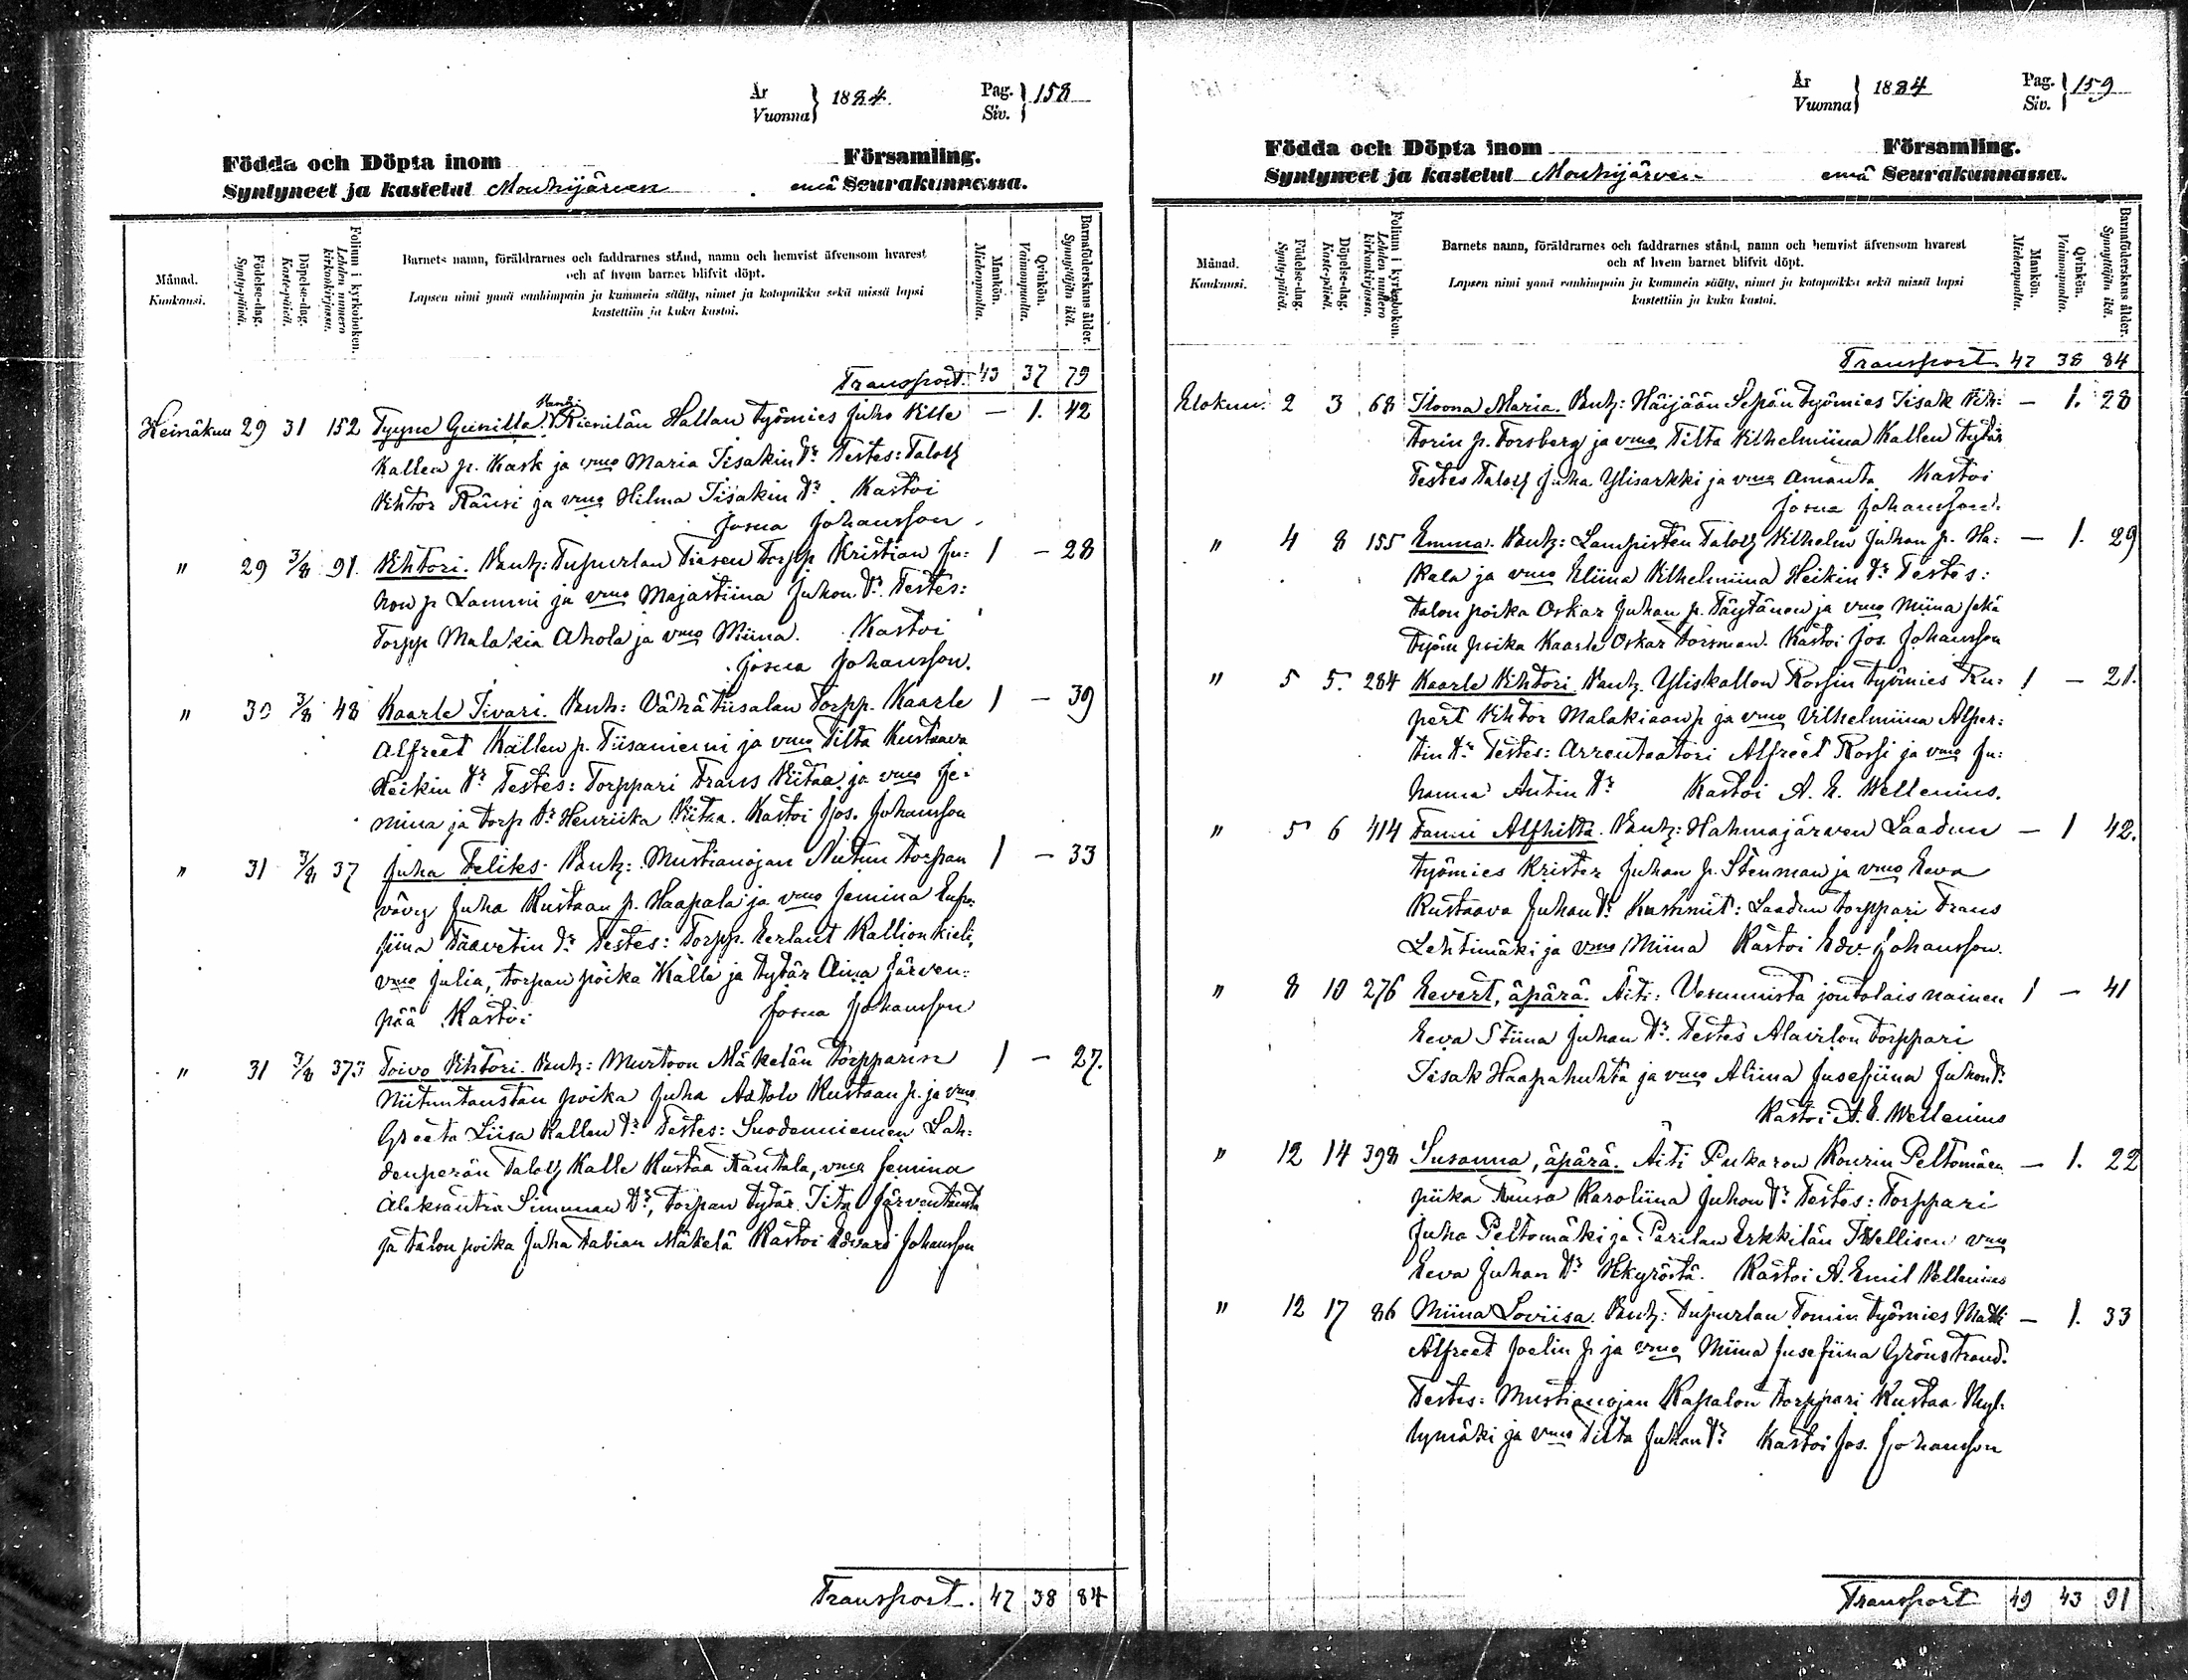 År
Vuonna } 1884.
Pag.
Siv. } 158
Födda och Döpta inom Församling.
Syntyneet ja kastetut Mouhijärven emä Seurakunnassa.
Månad.
Kuukausi.
Födelse-dag.
Synty-päivä.
Döpelse-dag.
Kaste-päivä.
Folium i kyrkoboken.
Lehden numero kirkonkirjassa.
Barnets namn, föräldrarnes och faddrarnes stånd, namn och hemvist äfvensom hvarest
och af hvem barnet blifvit döpt.
Lapsen nimi ynnä vanhimpain ja kummein sääty, nimet ja kotopaikka sekä missä lapsi
kastettiin ja kuka kastoi.
Mankön.
Miehenpuolia.
Qvinkön.
Vaimonpuolia.
Barnaföderskans ålder.
Synnyttäjän ikä.
Transport. 43 37 79
Heinäkuu 29 31 152 Tyyne Gunilla. Hallan työmies Juho Wille — 1. 42
Kallen p. Kask ja vmo Maria Iisakin tr. Testes: Talol
Vihtor Ränsi ja vmo Hilma Iisakin tr. Kastoi
Josua Johansson.
" 29 3/8 91. Vihtori. Vanh: Tupurlan Torpp. Kristian Ju- 1 — 28
hon p Lammi ja vmo Majastiina Juhon tr. Testes:
Torpp Malakia Ahola ja vmo Miina. Kastoi
Josua Johansson.
" 30 3/8 48 Kaarle Iivari. Vanh: Vähätiisalan Torpp. Kaarle 1 — 39
Alfreet Kallen p. Tiisaniemi ja vmo Tilta Kustaava
Heikin tr Testes: Torppari Frans Viitaa ja vmo Je-
mina ja torp tr Henriika Viitaa. Kastoi Jos. Johansson
" 31 3/8 37 Juha Feliks. Vanh: Mustianojan Niitun torpan 1 — 33
vävy Juha Kustaan p. Haapala ja vmo Jemina Eufro-
siina Taavetin tr Testes: Torpp. Eerlant Kallionkieli,
vmo Julia, torpan poika Kalle ja tytär Aina Järven-
pää Kastoi Josua Johansson
" 31 3/8 373 Toivo Vihtori. Vanh: Murtoon Mäkelän Torpparin 1 — 27.
Niituntaustan poika Juha Aatolv Kustaan p. ja vmo
Greeta Liisa Kallen tr Testes: Suodenniemen Lah-
denperän Talol Kalle Kustaa Räntala, vmo Jemina
Aleksantra Simunan tr, torpan tytär Ita Järventausta
ja talon poika Juha Fabian Mäkelä Kastoi Edvard Johansson
Transport. 47 38 84
År
Vuonna } 1884
Pag.
Siv. } 159
Födda och Döpta inom Församling.
Syntyneet ja kastetut Mouhijärven emä Seurakunnassa.
Månad.
Kuukausi.
Födelse-dag.
Synty-päivä.
Döpelse-dag.
Kaste-päivä.
Folium i kyrkoboken.
Lehden numero kirkonkirjassa.
Barnets namn, föräldrarnes och faddrarnes stånd, namn och hemvist äfvensom hvarest
och af hvem barnet blifvit döpt.
Lapsen nimi ynnä vanhimpain ja kummein sääty, nimet ja kotopaikka sekä missä lapsi
kastettiin ja kuka kastoi.
Mankön.
Miehenpuolia.
Qvinkön.
Vaimonpuolia.
Barnaföderskans ålder.
Synnyttäjän ikä.
Transport 47 38 84
Elokuu. 2 3 68 Iloona Maria. Vanh: Häijään Sepän työmies Iisak Vih- — 1. 28
torin p. Forsberg ja vmo Tilta Vilhelmiina Kallen tytär
Testes Talol Juha Ylisarkki ja vmo Amanta Kastoi
Josua Johansson.
" 4 8 155 Emma. Vanh: Lampisten Talol Vilhelm Juhan p. Ha- — 1. 29
kala ja vmo Eliina Vilhelmiina Heikin tr Testes:
talon poika Oskar Juhan p. Täytänen ja vmo Miina sekä
työm poika Kaarle Oskar Forsman. Kastoi Jos. Johansson
" 5 5. 284 Kaarle Vihtori. Vanh. Yliskallon Rossin työmies Ru- 1 — 21.
pert Vihtor Malakiaan p ja vmo Vilhelmiina Alper-
tin tr Testes: Arrentaatori Alfreet Rossi ja vmo Ju-
hanna Antin tr Kastoi A. E. Wellenius.
" 5 6 414 Fanni Alfhilta. Vanh: Hahmajärven Laadun — 1 42.
työmies Krister Juhan p. Stenman ja vmo Eeva
Kustaava Juhan tr Kummit: Laadun torppari Frans
Lehtimäki ja vmo Miina Kastoi Edv. Johansson.
" 8 10 276 Eevert, äpärä. Äiti: Vesunnista joutolais nainen 1 — 41
Eeva Stiina Juhan tr. Testes Torppari
Iisak Haapahuhta ja vmo Aliina Jusefiina Juhon tr
Kastoi A. E. Wellenius
" 12 14 398 Susanna, äpärä. Äiti Pukaron Kourin Peltomäen — 1. 22
piika Karoliina Juhon tr Testes: Torppari
Juha Peltomäki ja Parilan Erkkilän Itsellisen vmo
Eeva Juhan tr Hkyröstä. Kastoi A. Emil Vellenius
" 12 17 86 Miina Loviisa. Vanh: Tupurlan Tomin työmies Matti — 1. 33
Alfreet Joelin p ja vmo Miina Jusefiina Grönstrand.
Testes: Mustianojan Rapalon torppari Kustaa Myl-
lymäki ja vmo Tilta Juhan tr Kastoi Jos. Johansson
Transport 49 43 91